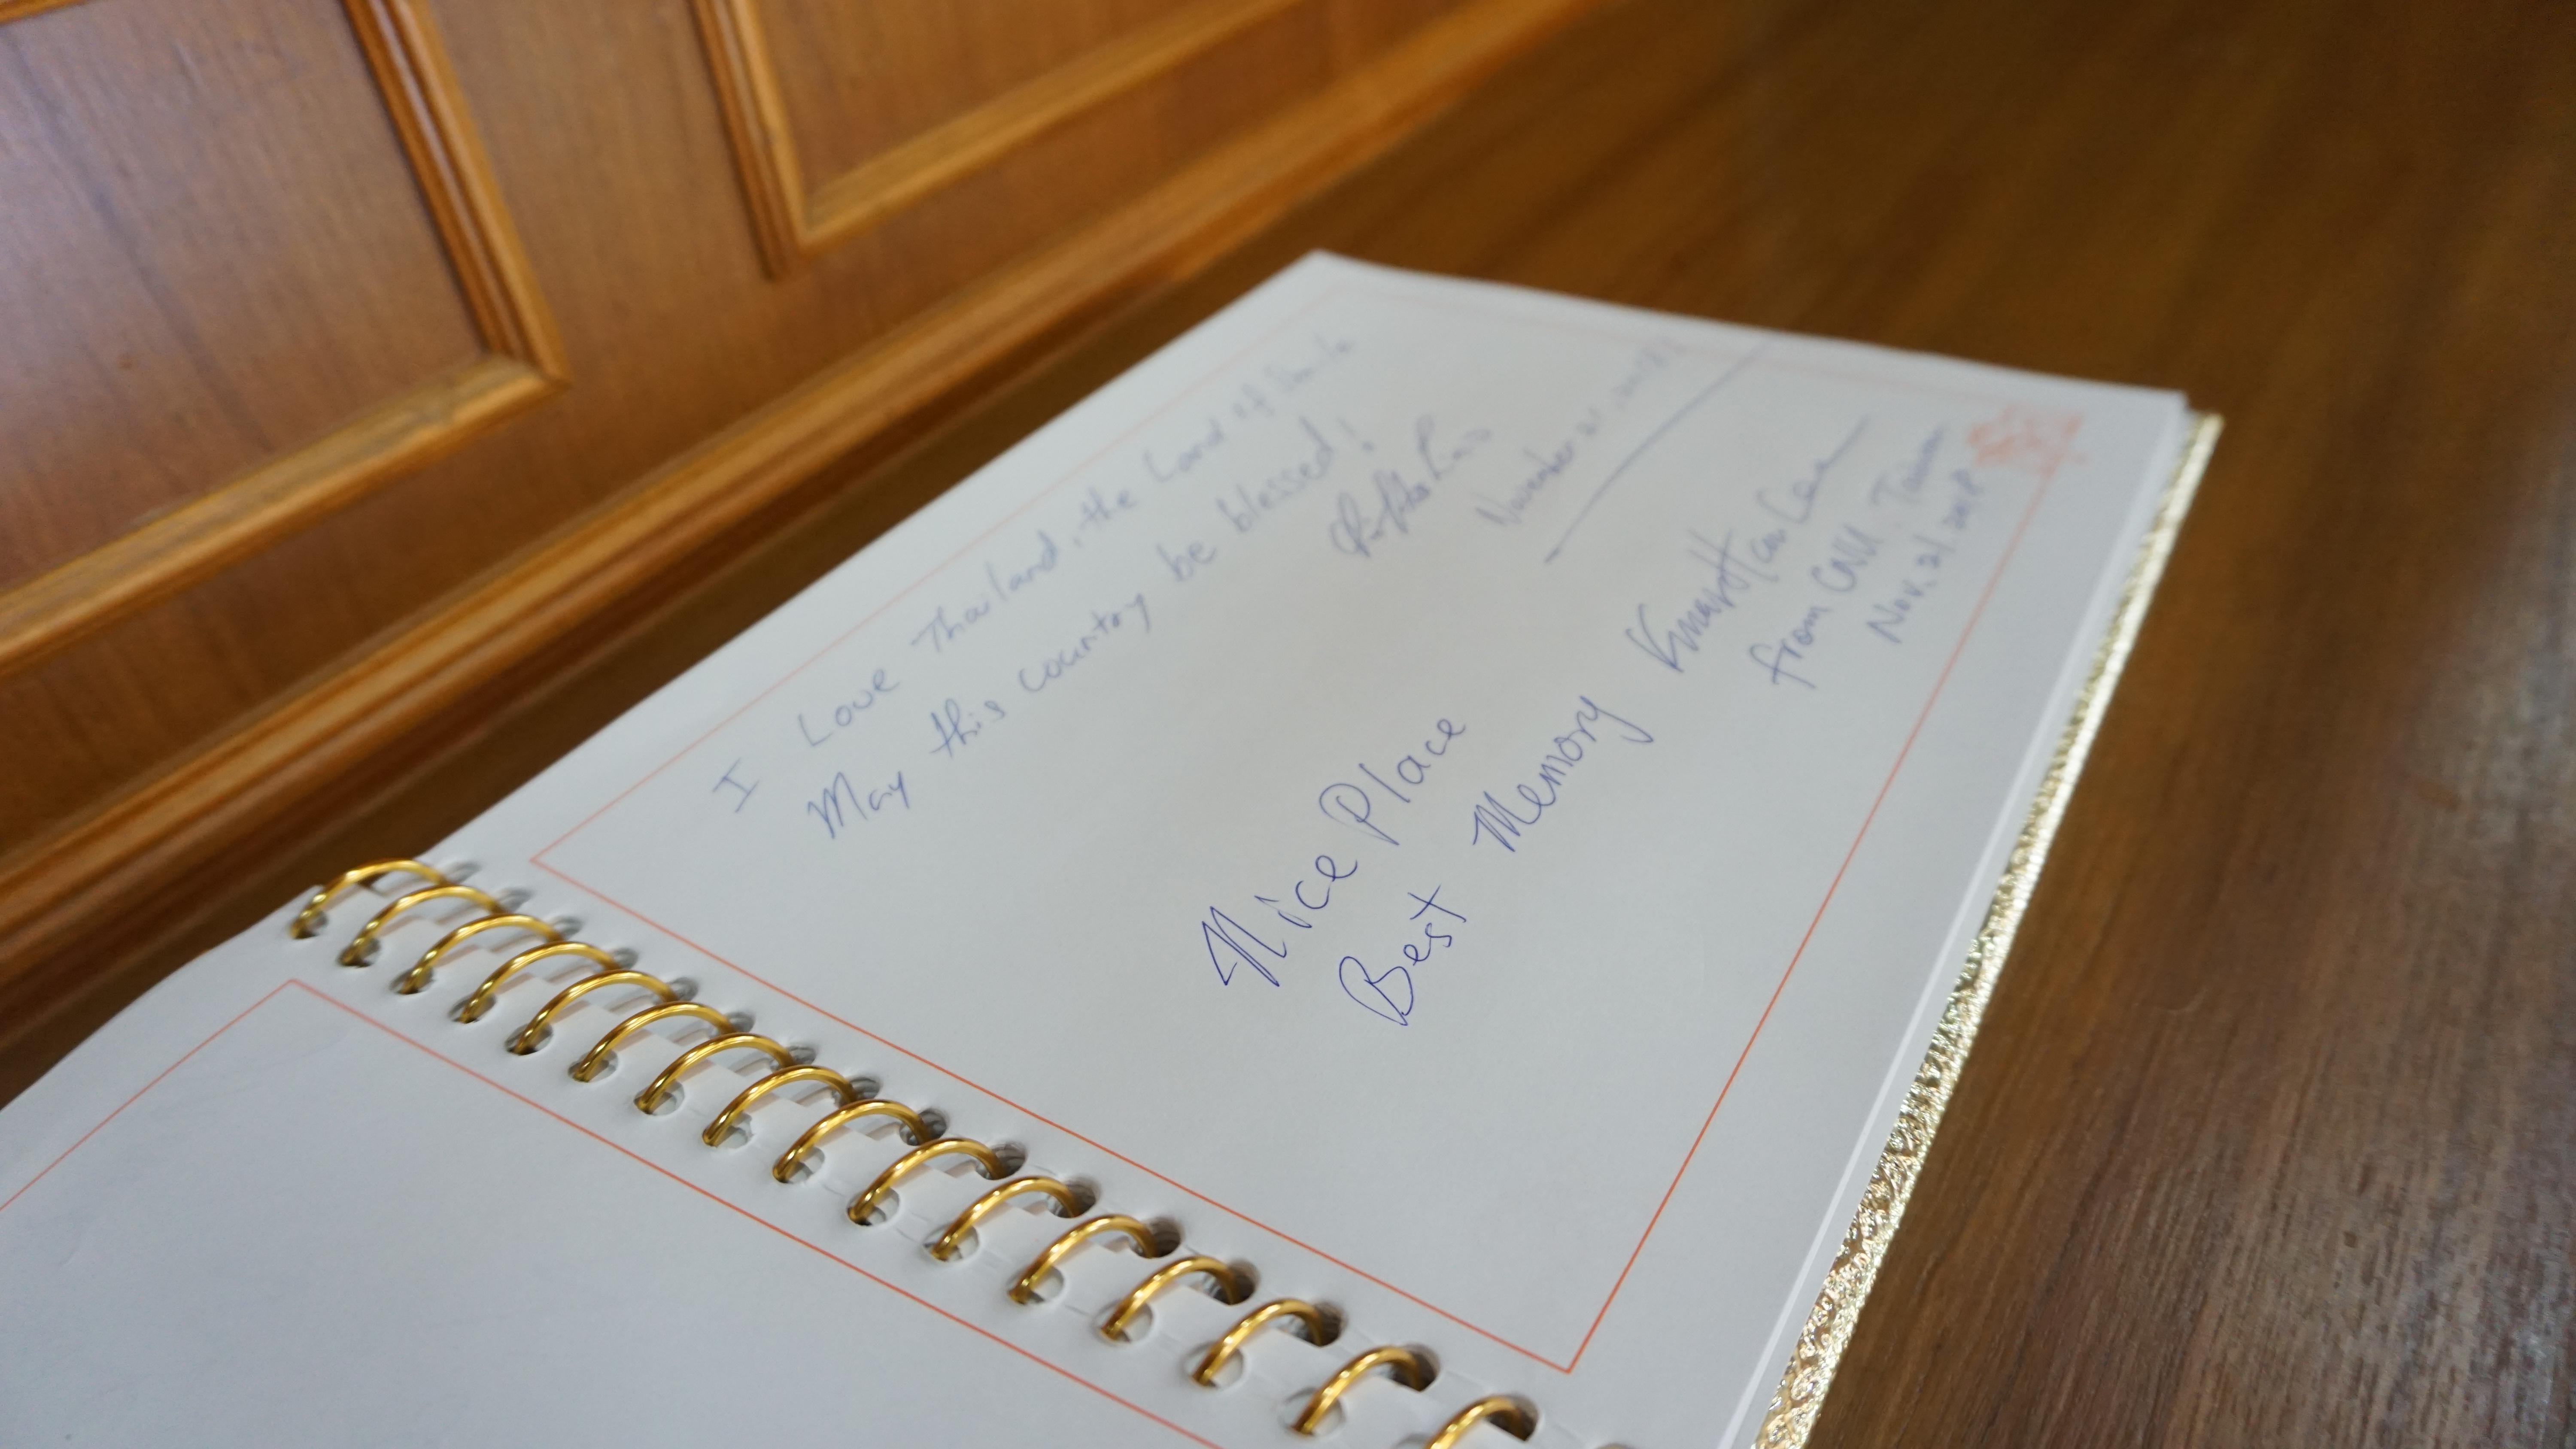 I Love Thailand, the Land of Smile
May this country be blessed!
November 21, 2018
Nice Place
Best Memory
from Taiwan
Nov. 21. 2018